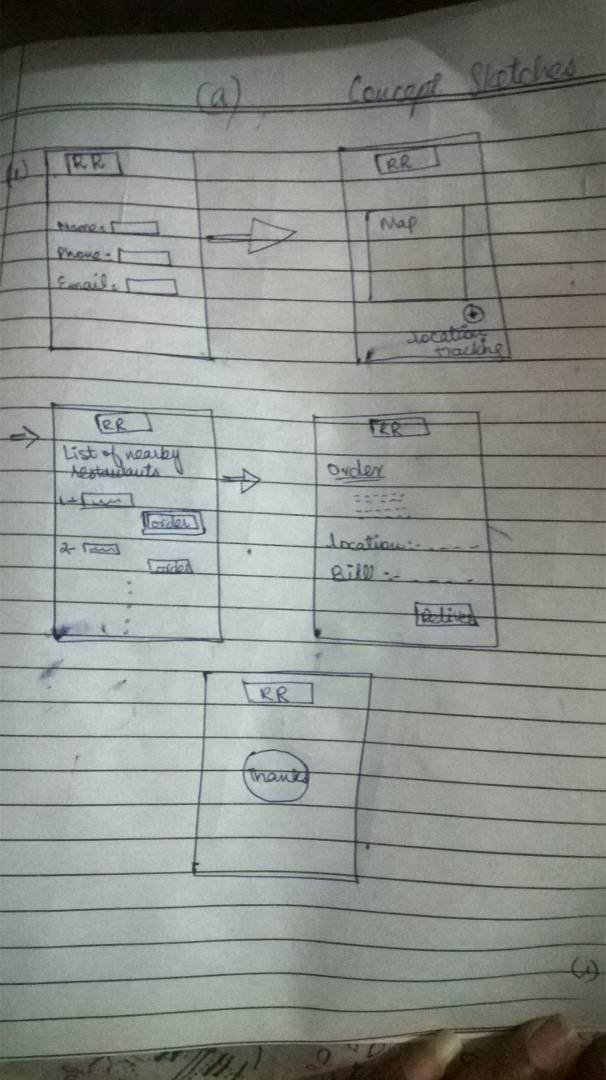 (a) Concept Sketches
(1)
RR
Name:-
Phone:-
Email:-
RR
Map
location
tracking
RR
List of nearby
restaurants
1-
order
2-
order
RR
Order
location:-
Bill:-
Deliver
RR
Thanks